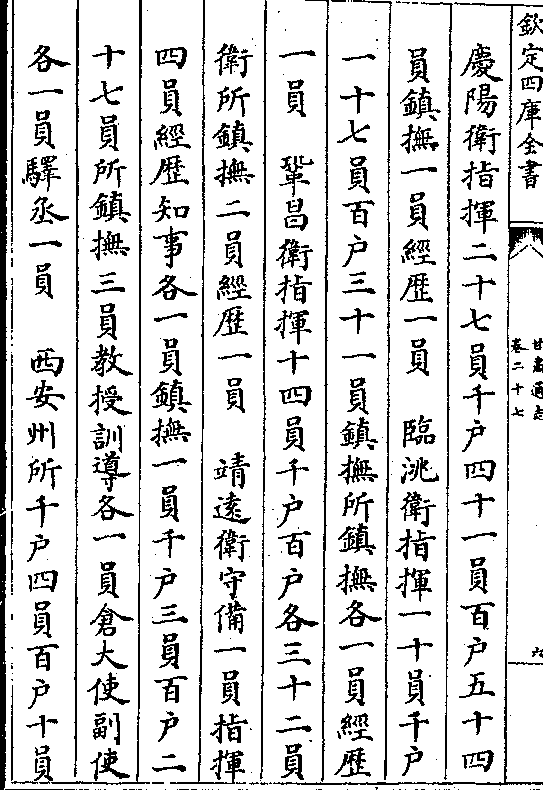 欽定四庫全書
甘肅通志
卷二十七
六
慶陽衛指揮二十七員千户四十一員百户五十四
員鎮撫一員經歴一員　臨洮衛指揮一十員千户
一十七員百户三十一員鎮撫所鎮撫各一員經歴
一員　鞏昌衛指揮十四員千户百户各三十二員
衛所鎮撫二員經歴一員　靖遠衛守備一員指揮
四員經歴知事各一員鎮撫一員千户三員百户二
十七員所鎮撫三員教授訓導各一員倉大使副使
各一員驛丞一員　西安州所千户四員百户十員